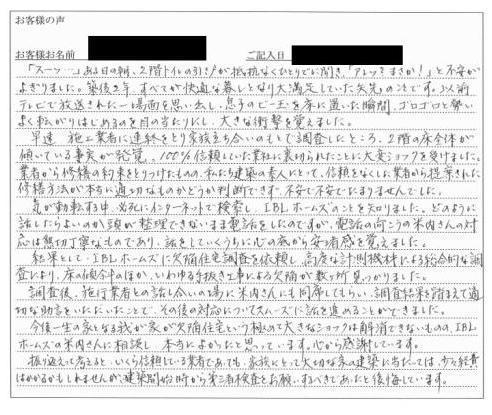 お客様の声
お客様お名前 ご記入日
「スーッ…」ある日の朝、2階トイレの引き戸が抵抗なくひとりでに開き、「アレッ?まさか!」と不安が
よぎりました。築後2年、すべてが快適な暮しとなり大満足していた矢先のことです。以前
テレビで放送された一場面を思い出し、息子のビー玉を床に置いた瞬間、ゴロゴロと勢い
よく転がりはじめるのを目の当りにし、大きな衝撃を覚えました。
早速、施工業者に連絡をとり家族立ち会いのもとで調査したところ、2階の床全体が
傾いている事実が発覚。100%信頼していた業社に裏切られたことに大変ショックを受けました。
業者から修繕の約束をとりつけたものの、私たち建築の素人にとって、信頼をなくした業者から提案された
修繕方法が本当に適切なものかどうか判断できず、不安で不安でたまりませんでした。
気が動転する中、必死にインターネットで検索し、IBLホームズのことを知りました。どのように
話したらよいのか頭が整理できないまま電話をしたのですが、電話の向こうの米内さんの対
応は懇切丁寧なものであり、話をしていくうちに心の底から安堵感を覚えました。
結果として、IBLホームズに欠陥住宅調査を依頼し、高度な計測機材による総合的な調
査により、床の傾きのほか、いわゆる手抜き工事による欠陥が数ヶ所見つかりました。
調査後、施行業者との話し合いの場に米内さんにも同席してもらい、調査結果を踏まえて適
切な助言をいただいたことで、その後の対応についてスムーズに話を進めることができました。
今後一生の家となる我が家が欠陥住宅という極めて大きなショックは解消できないものの、IBL
ホームズの米内さんに相談し、本当によかったと思っています。心から感謝しています。
振り返って考えると、いくら信頼している業者であっても、家族にとって大切な家の建築に当たっては、少々経費
はかかるかもしれませんが、建築開始時から第三者検査をお願いするべきであったと後悔しています。